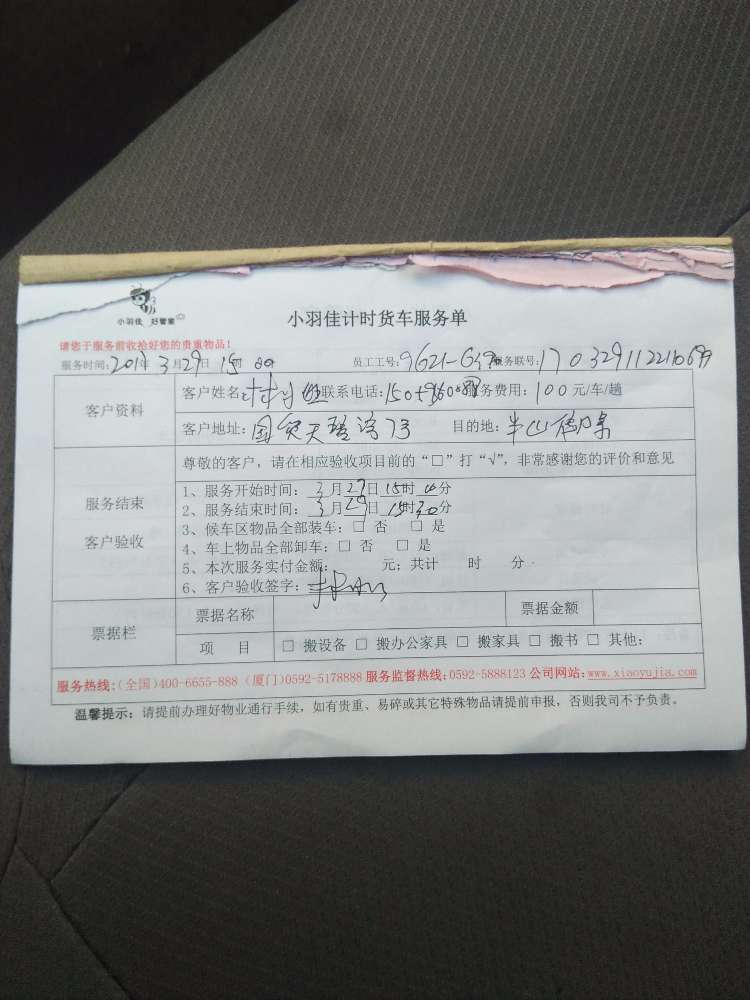 小羽佳 好管家
小羽佳计时货车服务单
请您于服务前收拾好您的贵重物品！
服务时间：2017年3月29日15时00 员工工号：9621-639 服务联号：17032911221
客户资料
客户姓名：林 联系电话：150 服务费用：100元/车/趟
客户地址：国贸天琴湾73 目的地：半山
尊敬的客户，请在相应验收项目前的“□”打“√”，非常感谢您的评价和意见
服务结束
客户验收
1、服务开始时间：3月29日15时00分
2、服务结束时间：3月29日15时30分
3、候车区物品全部装车：□ 否 □ 是
4、车上物品全部卸车：□ 否 □ 是
5、本次服务实付金额： 元；共计 时 分
6、客户验收签字：
票据栏
票据名称 票据金额
项 目 □ 搬设备 □ 搬办公家具 □ 搬家具 □ 搬书 □ 其他：
服务热线：(全国)400-6655-888 (厦门)0592-5178888 服务监督热线：0592-5888123 公司网站：www.xiaoyujia.com
温馨提示：请提前办理好物业通行手续，如有贵重、易碎或其它特殊物品请提前申报，否则我司不予负责。